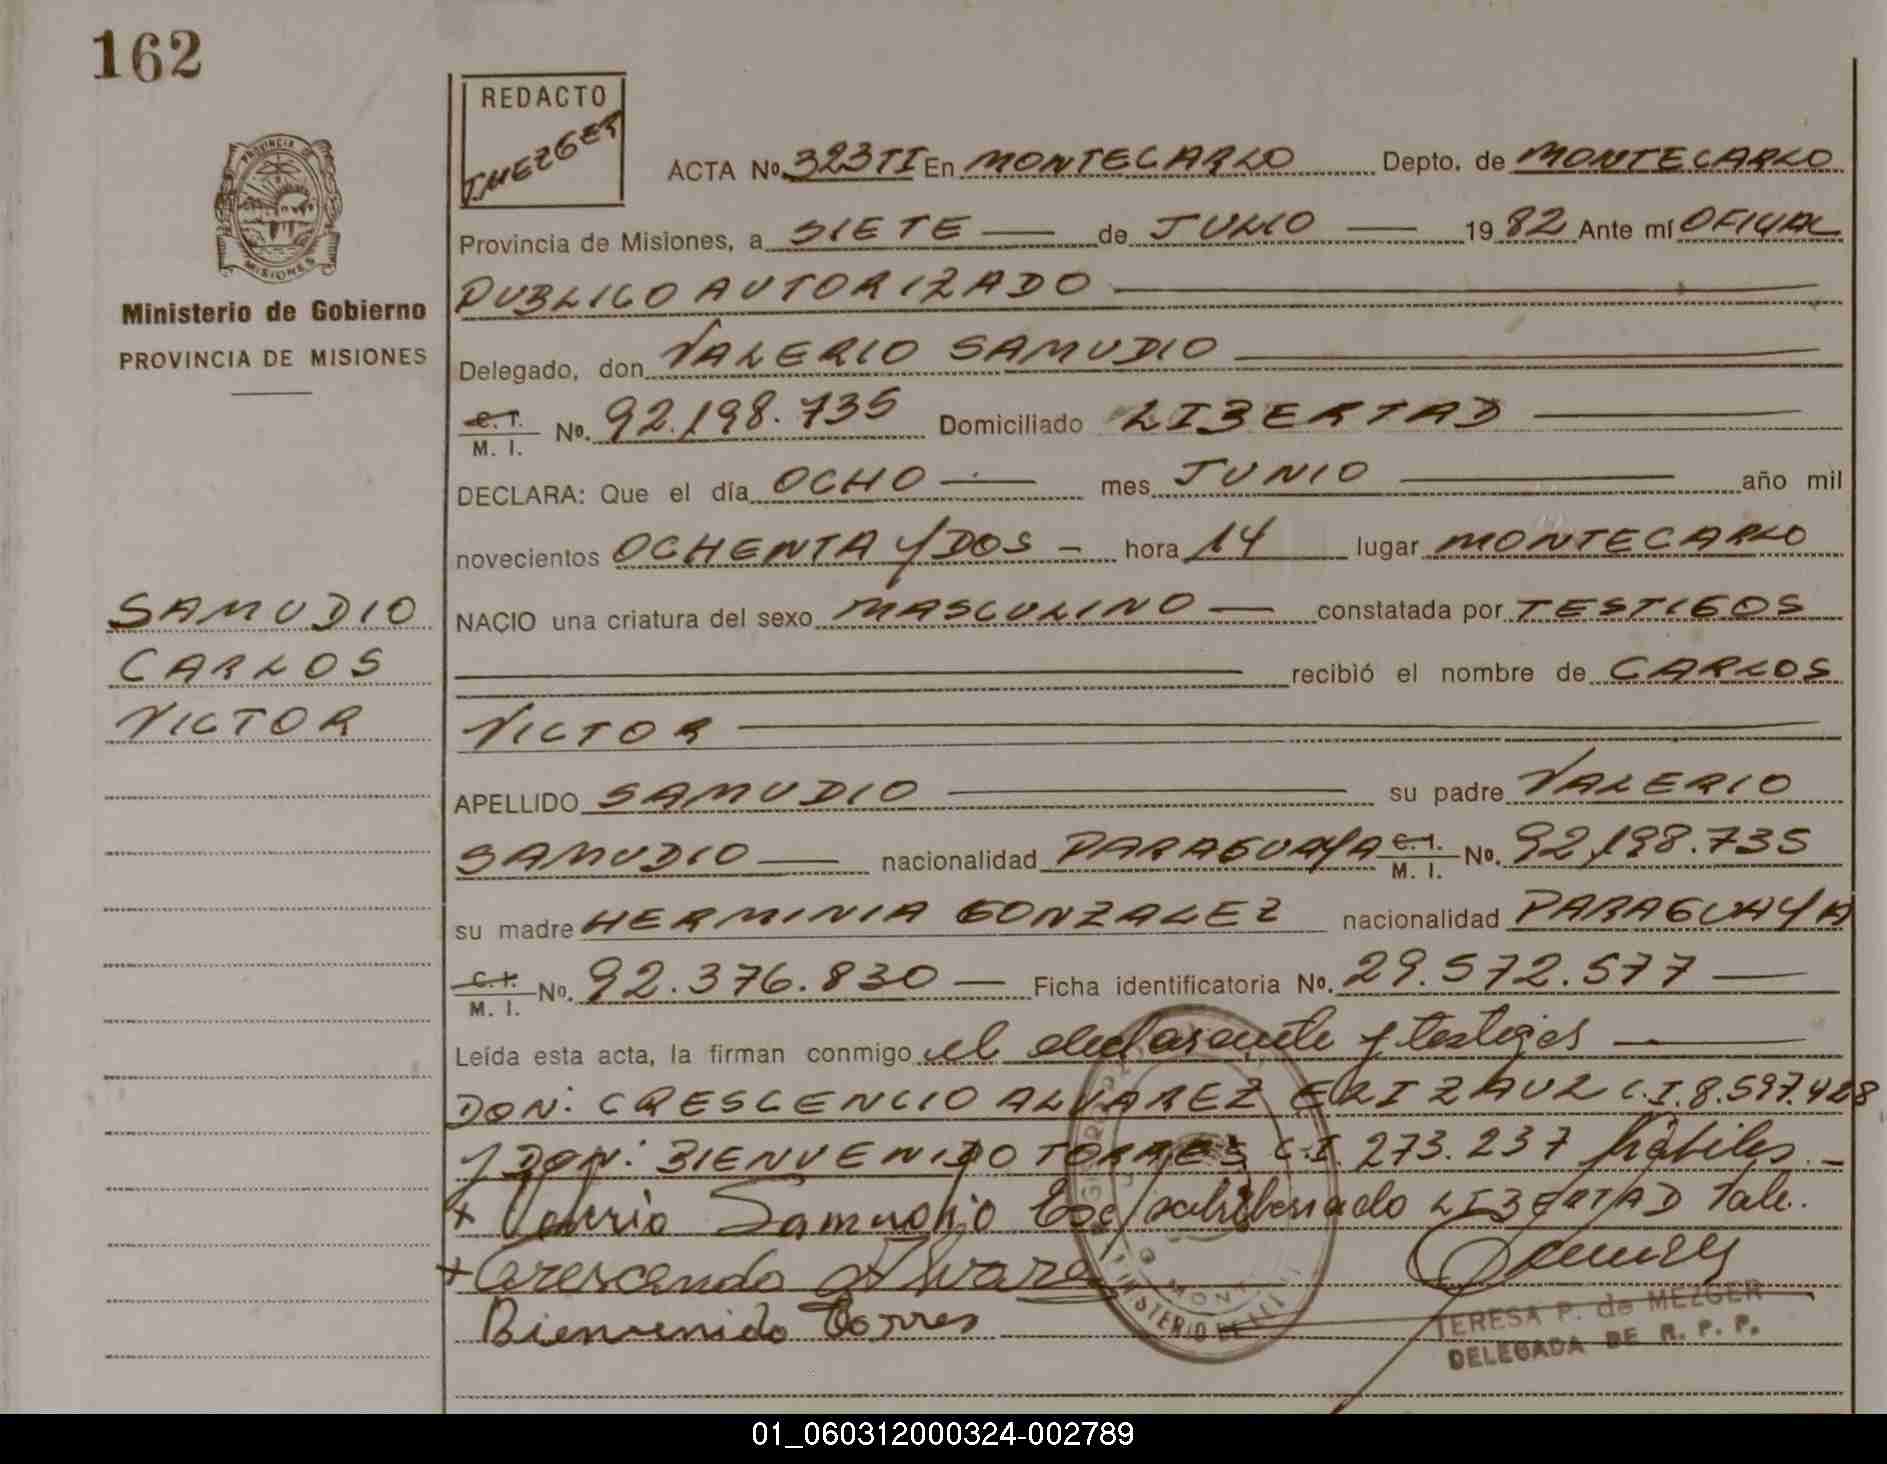 162
REDACTO
TMEZGER
PROVINCIA DE
MISIONES
Ministerio de Gobierno
PROVINCIA DE MISIONES
SAMUDIO
CARLOS
VICTOR
ACTA Nº 323TI En MONTECARLO Depto. de MONTECARLO
Provincia de Misiones, a SIETE — de JULIO — 19 82 Ante mí OFICIAL
PUBLICO AUTORIZADO —
Delegado, don VALERIO SAMUDIO —
C. I. M. I. Nº. 92.198.735 Domiciliado LIBERTAD —
DECLARA: Que el día OCHO — mes JUNIO — año mil
novecientos OCHENTA Y DOS - hora 14 lugar MONTECARLO
NACIO una criatura del sexo MASCULINO — constatada por TESTIGOS
— recibió el nombre de CARLOS
VICTOR —
APELLIDO SAMUDIO — su padre VALERIO
SAMUDIO — nacionalidad PARAGUAYA C. I. M. I. Nº. 92.198.735
su madre HERMINIA GONZALEZ nacionalidad PARAGUAYA
C. I. M. I. Nº. 92.376.830 — Ficha identificatoria Nº. 29.572.577 —
Leída esta acta, la firman conmigo el declarante y testigos —
DON: CRESCENCIO ALVAREZ C.I. 8.597.428
Y DON: BIENVENIDO TORRES C.I. 273.237 hábiles. -
x Valerio Samudio LIBERTAD Vale.
x Crescencio Alvare
Bienvenido Torres
MINISTERIO DE
TERESA P. de MEZGER
DELEGADA DE R. P. P.
01_060312000324-002789